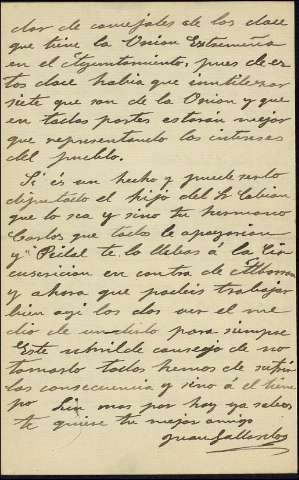 dor de concejales de los doce
que tiene la Union Extremeña
en el Ayuntamiento, pues de es
tos doce habia que inutilizar
siete que son de la Union y que
en todas partes estarán mejor
que representando los intereses
del pueblo.
Si és un hecho y puede serlo
diputado el hijo del Sr Cabian
que lo sea y sino tu hermano
Carlos que todos le apoyarian
y Peidal te lo llebas á la Cir
cuscricion en contra de
y ahora que podeis trabajar
bien ayi los dos ver el me
dio de undirlo para siempre
Este umilde consejo de no
tomarlo todos hemos de sufrir
las consecuencia y sino á el tiem
po Sin mas por hoy ya sabes
te quiere tu mejor amigo
Juan Gallardos